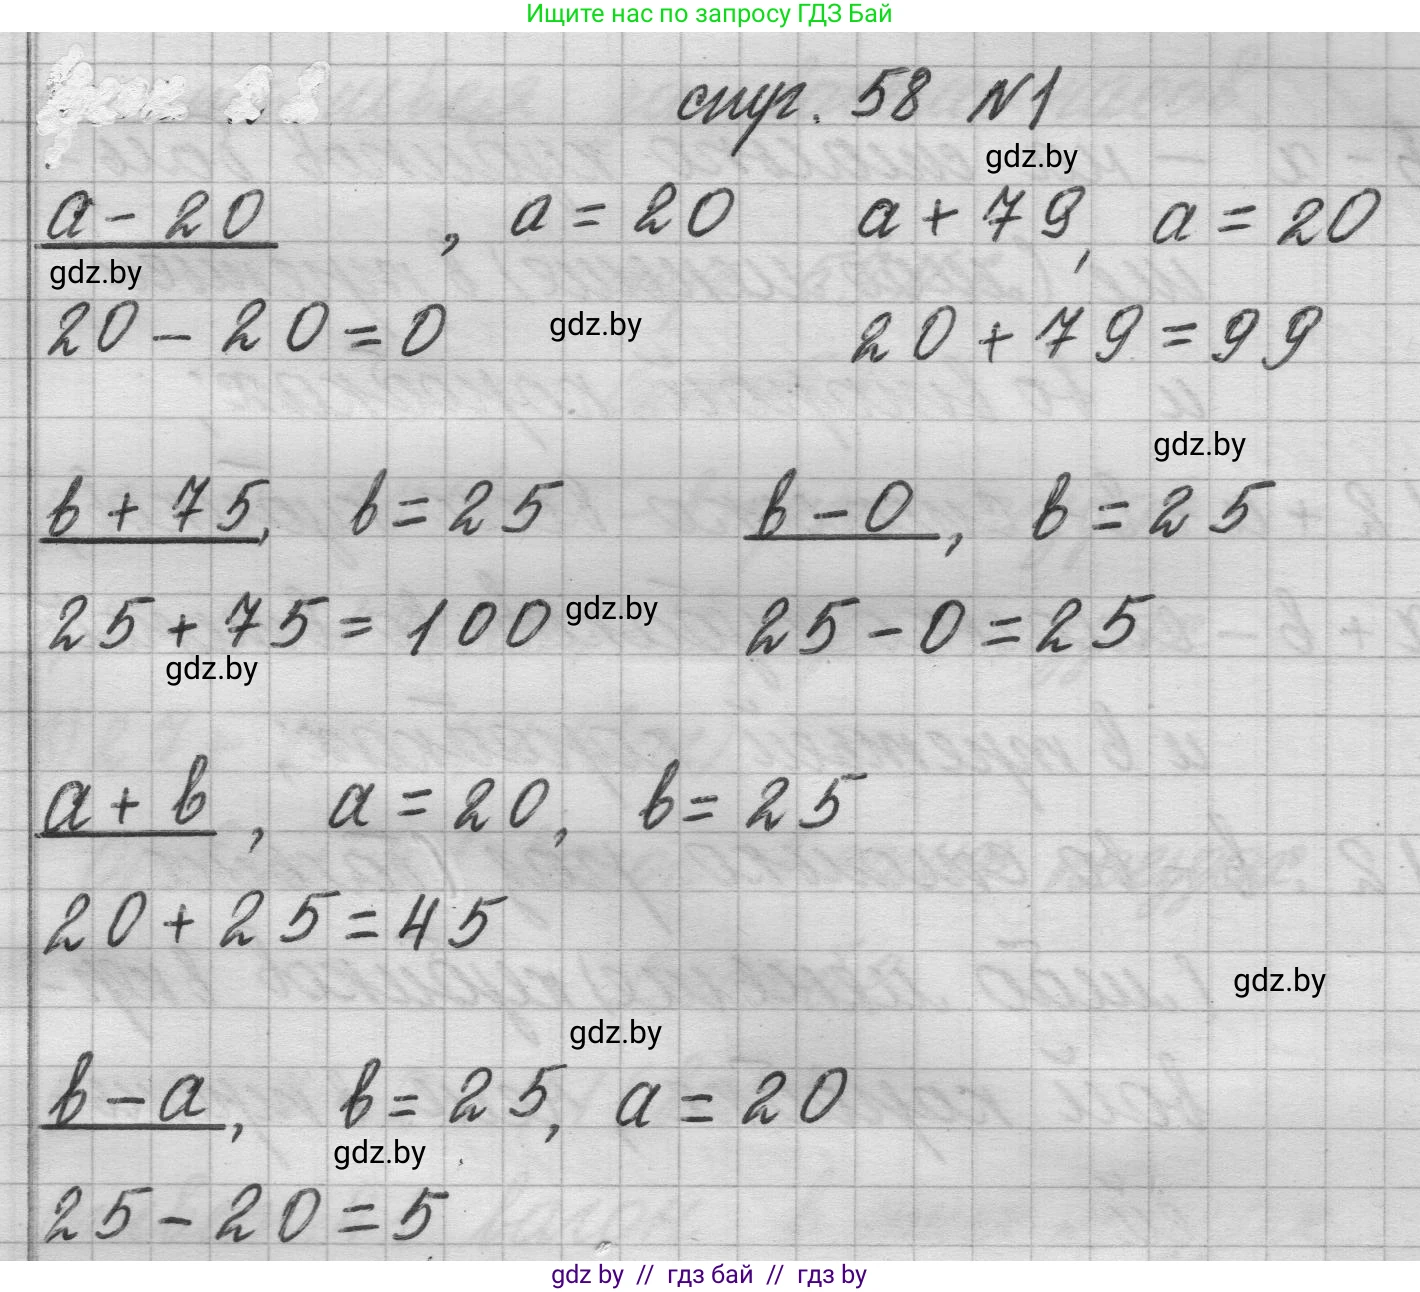 Ищите нас по запросу ГДЗ Бай
стр. 58 №1
gdz.by
a - 20 , a = 20 a + 79, a = 20
gdz.by
20 - 20 = 0 gdz.by 20 + 79 = 99
gdz.by
b + 75, b = 25 b - 0, b = 25
25 + 75 = 100 gdz.by 25 - 0 = 25
gdz.by
a + b, a = 20, b = 25
20 + 25 = 45
gdz.by
gdz.by
b - a, b = 25, a = 20
gdz.by
25 - 20 = 5
gdz by // гдз бай // гдз by